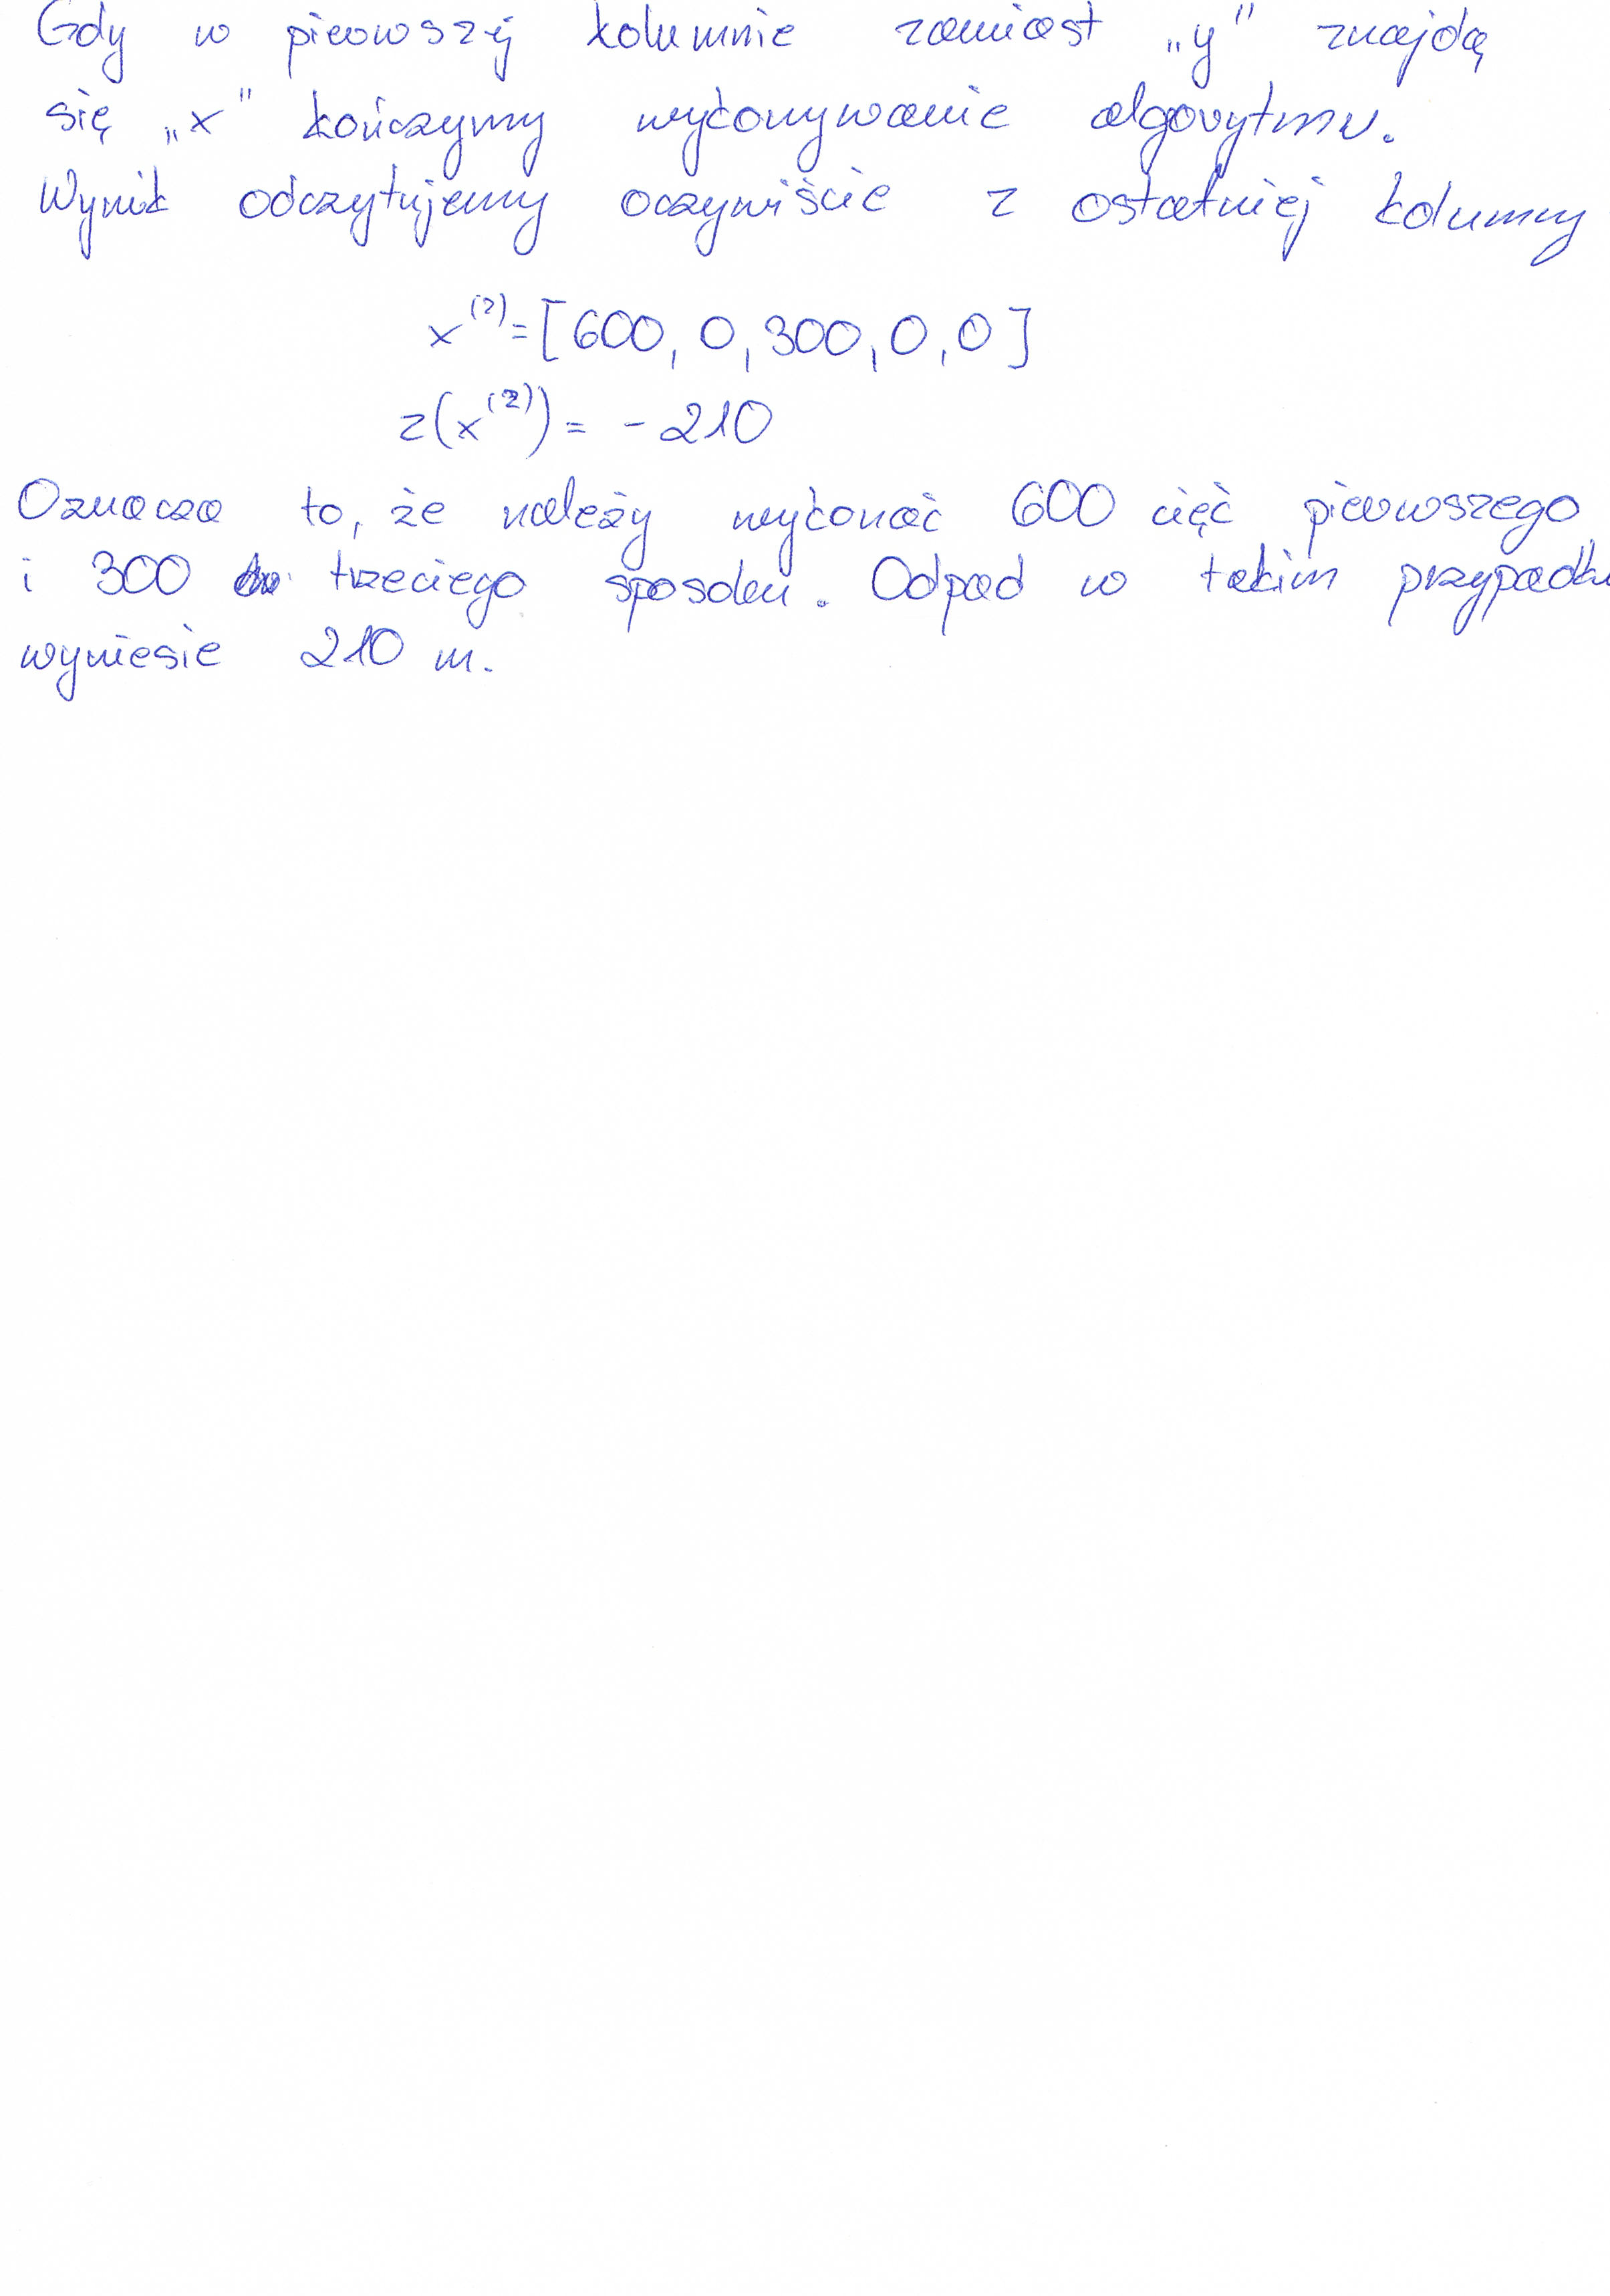 Gdy w pierwszej kolumnie zamiast „y" znajdą
się „x" kończymy wykonywanie algorytmu.
Wynik odczytujemy oczywiście z ostatniej kolumny
x⁽²⁾ = [600, 0, 300, 0, 0]
z(x⁽²⁾) = -210
Oznacza to, że należy wykonać 600 cięć pierwszego
i 300 trzeciego sposobu. Odpad w takim przypadku
wyniesie 210 m.